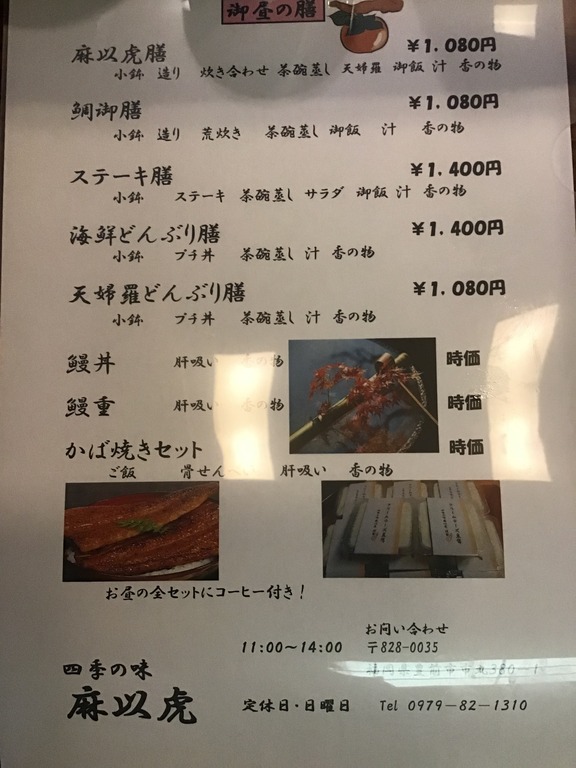 御昼の膳
麻以虎膳 ￥1.080円
小鉢 造り 炊き合わせ 茶碗蒸し 天婦羅 御飯 汁 香の物
鯛御膳 ￥1.080円
小鉢 造り 荒炊き 茶碗蒸し 御飯 汁 香の物
ステーキ膳 ￥1.400円
小鉢 ステーキ 茶碗蒸し サラダ 御飯 汁 香の物
海鮮どんぶり膳 ￥1.400円
小鉢 プチ丼 茶碗蒸し 汁 香の物
天婦羅どんぶり膳 ￥1.080円
小鉢 プチ丼 茶碗蒸し 汁 香の物
鰻丼 肝吸い 香の物 時価
鰻重 肝吸い 香の物 時価
かば焼きセット 時価
ご飯 骨せんべい 肝吸い 香の物
お昼の全セットにコーヒー付き！
お問い合わせ
11:00〜14:00 〒828-0035
四季の味
麻以虎
定休日・日曜日 Tel 0979−82−1310